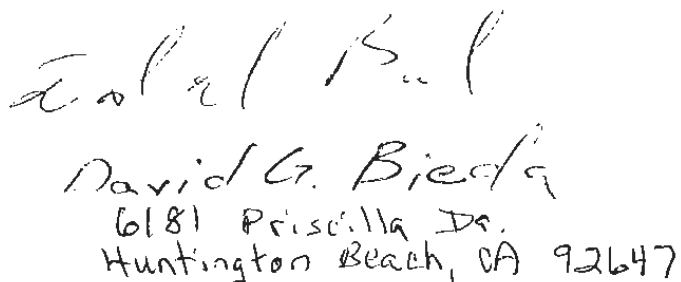 David G. Bieda
6181 Priscilla Dr.
Huntington Beach, CA 92647